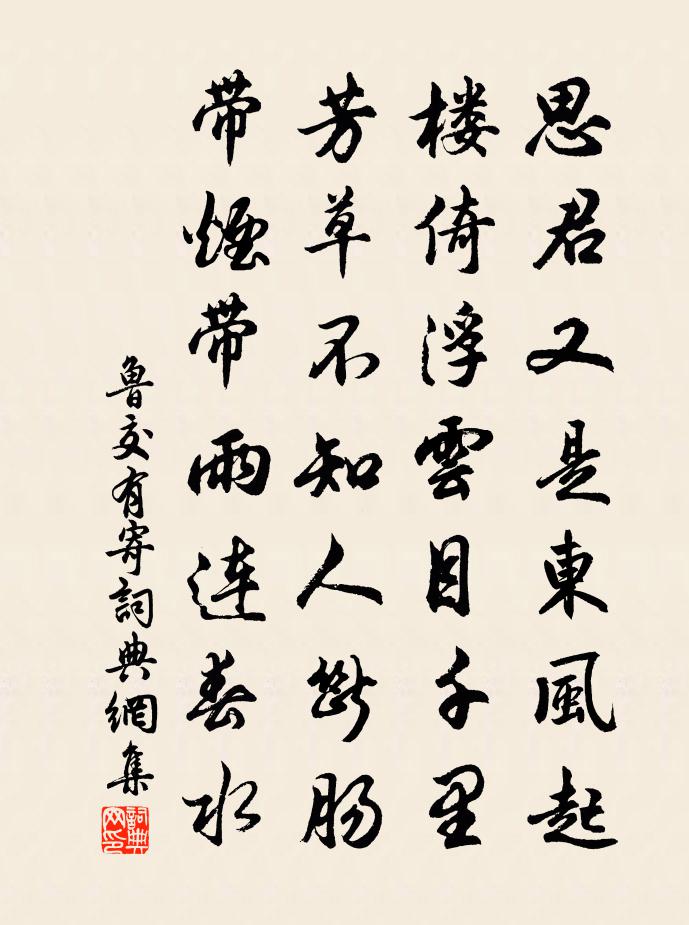 思君又是東風起
楼倚浮雲目千里
芳草不知人断腸
带煙带雨連春水
魯交有寄詞典網集
詞典
网印